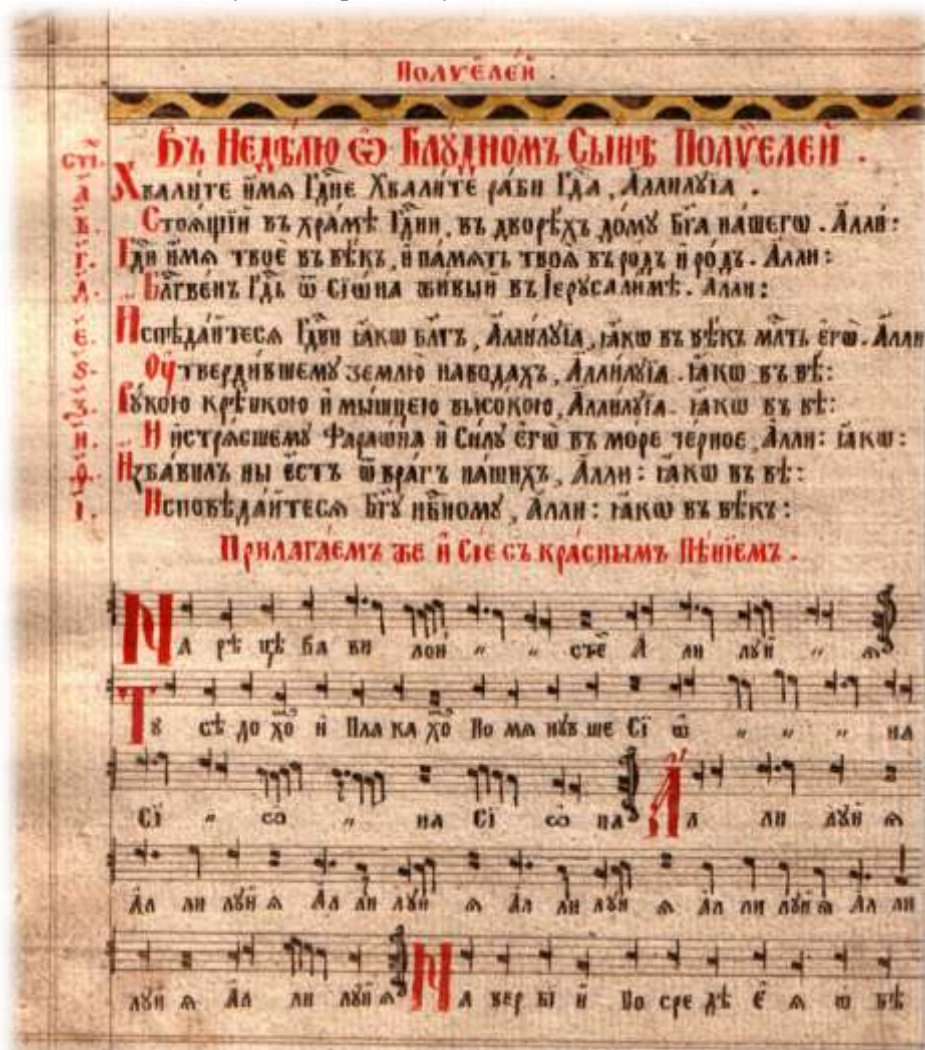 Полѵелей .
Въ Недѣлю Ѡ Блꙋдномъ Сынѣ Полѵелей .
стⷯі.
а҃. Хвали́те и҆́мѧ Гдⷭ҇не Хвали́те ра́би Гдⷭ҇а , Аллилꙋ́їа .
в҃. Стоѧ́щїи въ хра́мѣ Гдⷭ҇ни , въ дворѣ́хъ до́мꙋ Бг҃а на́шегѡ . А҆лли :
г҃. Гдⷭ҇и и҆́мѧ твоѐ въ вѣ́къ , и҆ па́мѧть твоѧ̀ въ ро́дъ и҆ ро́дъ . А҆лли :
д҃. Блгⷭ҇ве́нъ Гдⷭ҇ь ѿ Сїѡ́на живы́й въ Іерꙋсали́мѣ . А҆лли :
є҃. Исповѣ́дайтесѧ Гдⷭ҇ви ꙗ҆́кѡ бл҃гъ , А҆ллилꙋ́їа , ꙗ҆́кѡ въ вѣ́къ млⷭ҇ть є҆гѡ̀ . А҆лли
ѕ҃. Оу҆твердившемꙋ зе́млю на вода́хъ , А҆ллилꙋ́їа . ꙗ҆́кѡ въ вѣ́ :
з҃. Рꙋко́ю крѣ́пкою и҆ мы́шцею высо́кою , А҆ллилꙋ́їа . ꙗ҆́кѡ въ вѣ́ :
и҃. И҆ и҆стрѧ́сшемꙋ Фараѡ́на и҆ Си́лꙋ є҆гѡ̀ въ мо́ре че́рное , А҆лли : ꙗ҆́кѡ :
ѳ҃. И҆зба́вилъ ны є҆́сть ѿ вра́гъ на́шихъ , А҆лли : ꙗ҆́кѡ въ вѣ́ :
і҃. Исповѣ́дайтесѧ Бг҃ꙋ нбⷭ҇номꙋ , А҆лли : ꙗ҆́кѡ въ вѣ́къ :
Прилага́емъ же и҆ Сїе съ кра́снымъ Пѣ́нїемъ .
На рѣ цѣ ва ви лѡн 〃 〃 стѣ А ли лꙋи 〃 ѧ
Тꙋ сѣ до хоⷨ и Пла ка хоⷨ По мѧ нꙋв ше Сї ѡ 〃 〃 〃 на
Сї 〃 ѡ 〃 на Сї ѡ на Ал ли лꙋи ѧ
Ал ли лꙋи ѧ Ал ли лꙋи ѧ Ал ли лꙋи ѧ Ал ли лꙋи ѧ Ал ли
лꙋи ѧ Ал ли лꙋи ѧ На вер бї и По сре дѣ Є ѧ ѡ бѣ